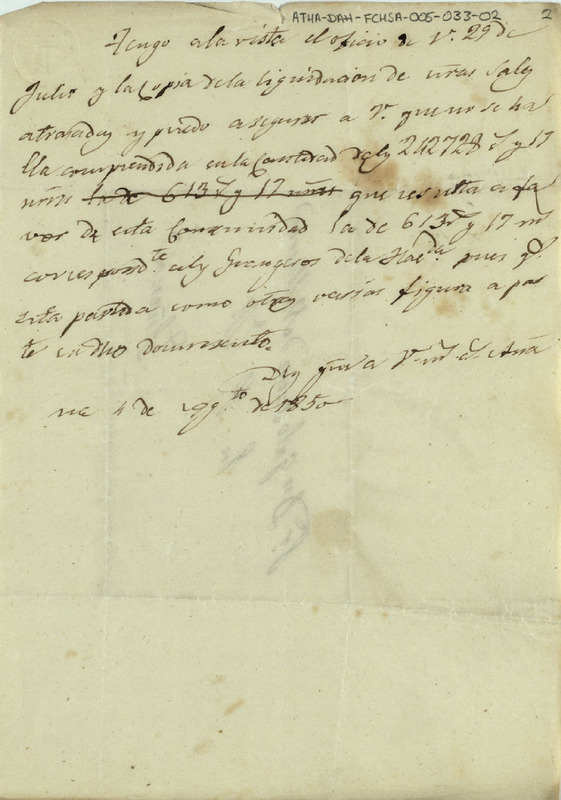 ATHA-DAH-FCHSA-005-033-02
2
Tengo a la vista el oficio de V. 29 de
Julio y la copia de la liquidacion de vras Sales
atrasadas y puedo asegurar a V. que no se ha
lla comprendida en la Cantidad de los 242728 rs y 17
mrs la de 613 rs y 17 mrs que resulta a fa
vor de esta Comunidad la de 613 rs y 17 ms
correspondte a los Grangeros de la Hacda pues qe
esta partida como otras varias figura a par
te en dho documento.
Dios gue a V. ms as Aña
na 4 de Aggto de 1850